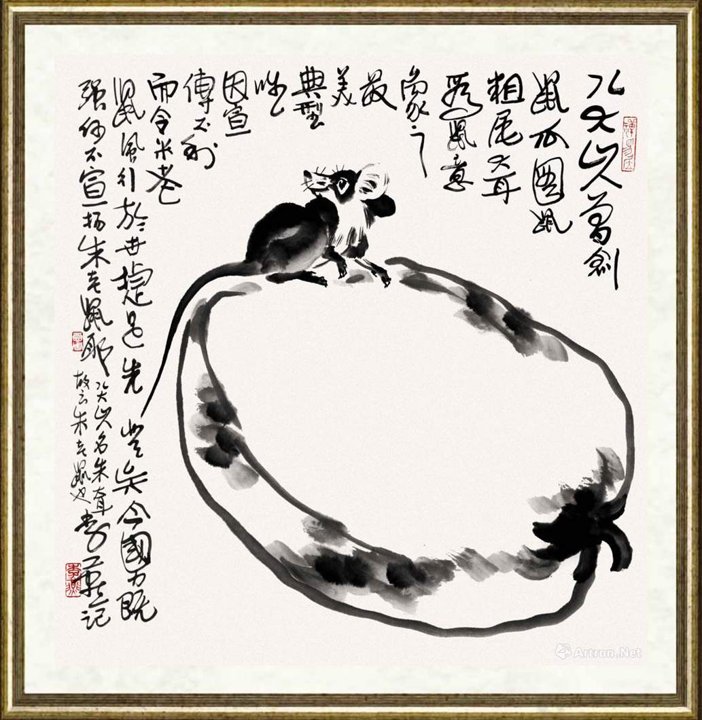 八大山人曾創
鼠瓜圖鼠
粗尾大耳
鼠意
象之
最
美
典型
惟
因宣
傳不利
而令米老
鼠風行於世捷足先登矣今國力既
强何不宣揚朱老鼠耶
八大山人名朱耷
故云朱老鼠也
李燕記
Artron.Net